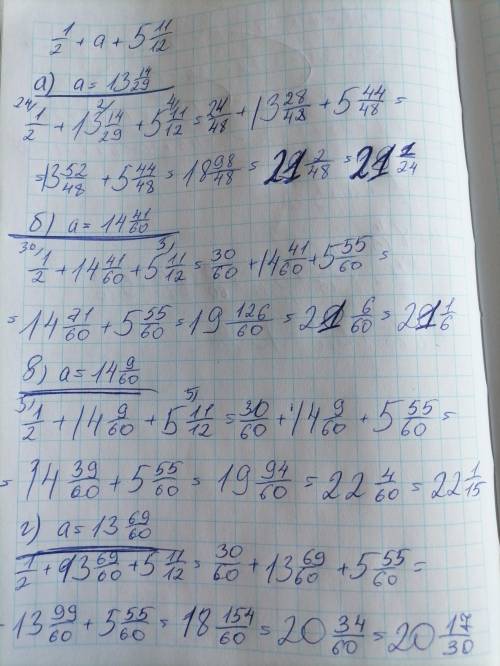 1/2 + a + 5 11/12
а) a = 13 14/29
24/ 1/2 + 13 2/ 14/29 + 5 4/ 11/12 = 24/48 + 13 28/48 + 5 44/48 =
= 13 52/48 + 5 44/48 = 18 98/48 = 21 2/48 = 21 1/24
б) a = 14 41/60
30/ 1/2 + 14 41/60 + 5 5/ 11/12 = 30/60 + 14 41/60 + 5 55/60 =
= 14 71/60 + 5 55/60 = 19 126/60 = 21 6/60 = 21 1/6
в) a = 14 9/60
5/ 1/2 + 14 9/60 + 5 5/ 11/12 = 30/60 + 14 9/60 + 5 55/60 =
= 14 39/60 + 5 55/60 = 19 94/60 = 22 4/60 = 22 1/15
г) a = 13 69/60
1/2 + 13 69/60 + 5 11/12 = 30/60 + 13 69/60 + 5 55/60 =
- 13 99/60 + 5 55/60 = 18 154/60 = 20 34/60 = 20 17/30